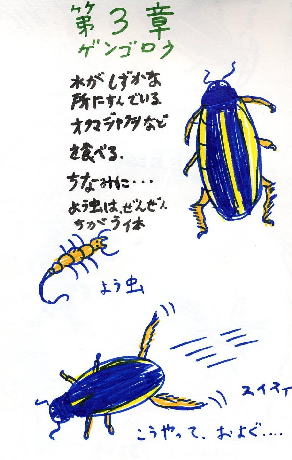 第3章
ゲンゴロウ
水がしずかな
所にすんでいる
オタマジャクシなど
を食べる.
ちなみに・・・
よう虫は、ぜんぜん
ちがう体
よう虫
スイスイ
こうやって、およぐ・・・・